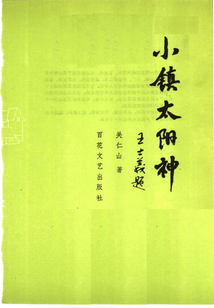 小镇太阳神
王士美题
关仁山 著
百花文艺出版社